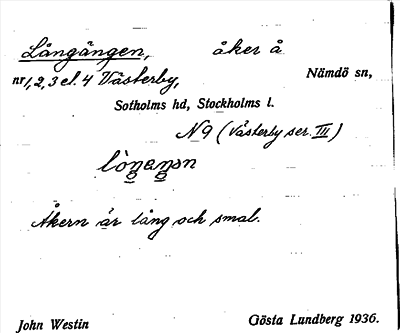 Långängen, åker å
nr 1, 2, 3 el. 4 Västerby, Nämdö sn,
Sotholms hd, Stockholms l.
N 9 (Västerby ser. III)
Åkern är lång och smal.
John Westin Gösta Lundberg 1936.